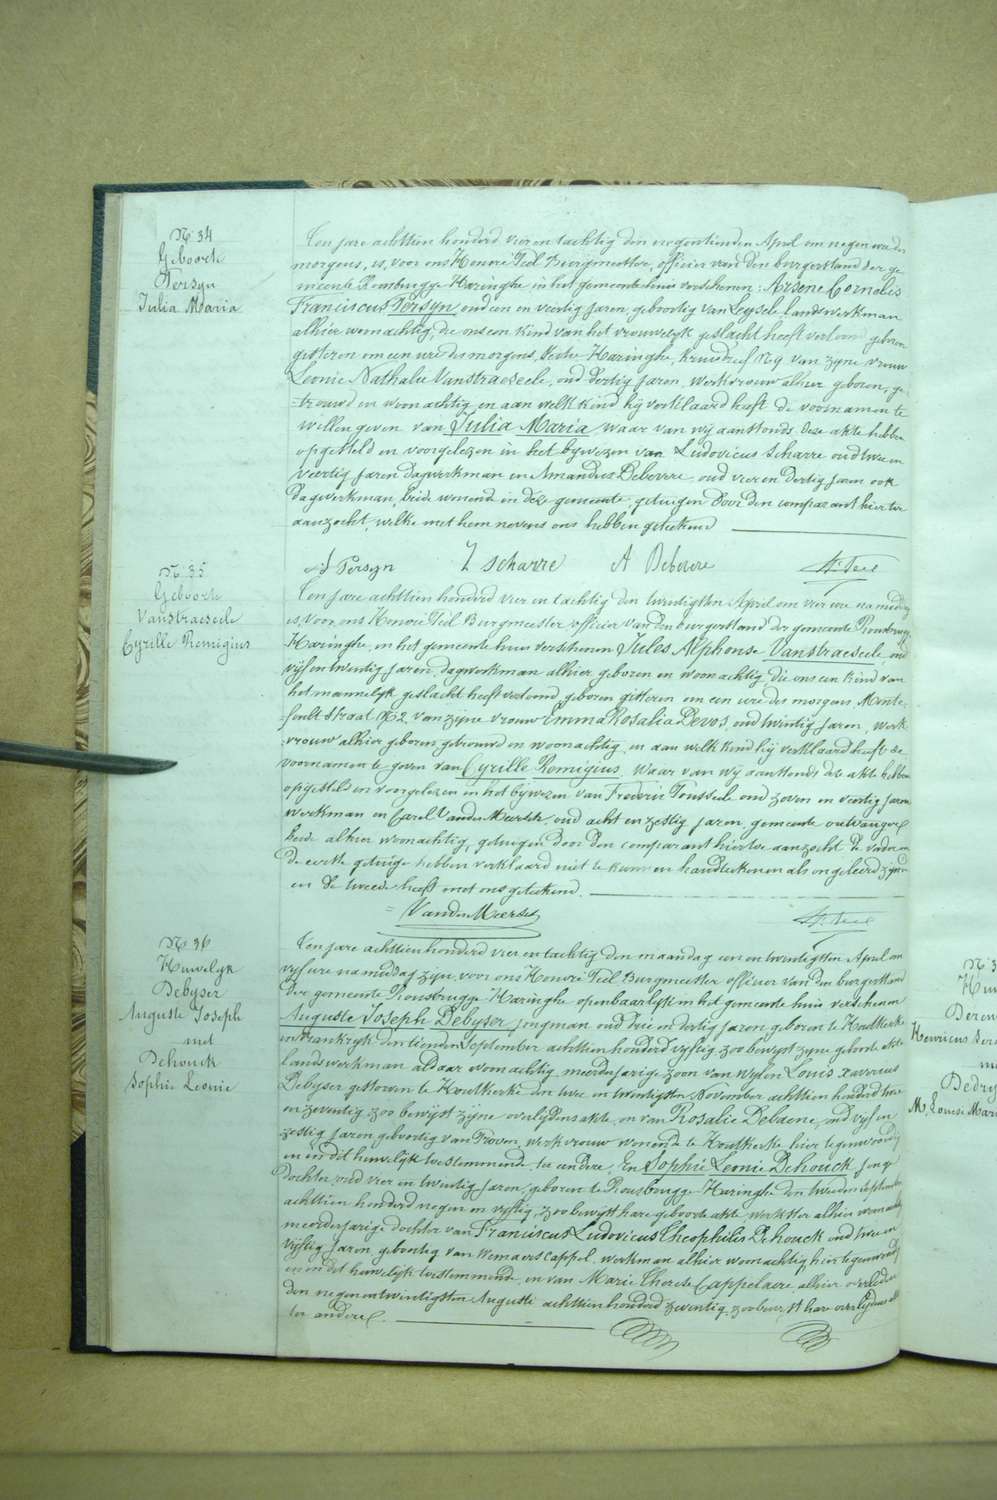 N° 34
Geboorte
Persyn
Julia Maria
Ten jare achttien honderd vier en tachtig den negentienden April om negen ure des
morgens, is, voor ons Honoré Teel Burgmeester, officier van den burgerstand der ge
meente Rousbrugge-Haringhe in het gemeente huis verschenen: Arsene Cornelis
Franciscus Persyn, oud een en veertig jaren, geboortig van Leysele landswerkman
alhier woonachtig, die ons een kind van het vrouwelyk geslacht heeft vertoon geboren
gisteren om een ure des morgens, Sectie Haringhe, kruisdreef N 9 van zyne vrouw
Leonie Nathalie Vanstraeseele, oud dertig jaren, werkvrouw alhier geboren, ge-
=trouwd en woonachtig, en aan welk kind hij verklaard heeft de voornamen te
willen geven van Julia Maria waar van wij aanstonds deze akte hebben
opgesteld en voorgelezen in het bywezen van Ludovicus Scharre oud twee en
veertig jaren dagwerkman en Amandus Debevere oud vier en dertig jaren ook
dagwerkman, beide wonend in deze gemeente, getuigen door den comparant hier toe
aanzocht, welke met hem nevens ons hebben geteekend
Persyn L Scharre A Debevere H. Teel
N° 35
Geboorte
Vanstraeseele
Cyrille Remigius
Ten jare achttien honderd vier en tachtig den twintigsten April om vier ure namiddag
is, voor ons Honoré Teel Burgmeester officier van den burgerstand der gemeente Rousbrugge
Haringhe, in het gemeente huis verschenen Jules Alphonse Vanstraeseele, oud
vijf en twintig jaren, dagwerkman alhier geboren en woonachtig, die ons een kind van
het mannelyk geslacht heeft vertoond, geboren gisteren om een ure des morgens,
straat N° 32 van zijne vrouw Emma Rosalia Devos, oud twintig jaren, werk
vrouw alhier geboren, getrouwd en woonachtig, en aan welk kind hij verklaard heeft de
voornamen te geven van Cyrille Remigius, waar van wij aanstonds deze akte hebben
opgesteld en voorgelezen in het bijwezen van Frederic Toussaele oud zeven en veertig jaren
werkman en Carel Vander Meersch, oud acht en zestig jaren, gemeente ontvanger
beide alhier woonachtig, getuigen door den comparant hiertoe aanzocht De vader en
de eerste getuige hebben verklaard niet te kunnen handteekenen als ongeleerd zijnde
en de tweede heeft met ons geteekend.
Vander Meersch H. Teel
N° 36
Huwelyk
Debyser
Auguste Joseph
met
Dehouck
Sophie Leonie
Ten jare achttien honderd vier en tachtig den maandag een en twintigsten April om
vyf ure namiddag zijn, voor ons Honoré Teel Burgmeester officier van den burgerstand
der gemeente Rousbrugge-Haringhe openbaarlyk in het gemeente huis verschenen
Auguste Joseph Debyser jongman oud drie en dertig jaren geboren te Houtkerke
in Frankryk den tienden September achttien honderd vyftig zoo bewyst zyne geboorte akte
landswerkman aldaar woonachtig meerderjarige zoon van wylen Louis Xaverius
Debyser gestorven te Houtkerke den twee en twintigsten November achttien honderd twee
en zeventig, zoo bewyst zijne overlijdens akte, en van Rosalie Debaene, oud vyf en
zestig jaren geboortig van Proven, werkvrouw wonende te Houtkerke, hier tegenwoordig
en in dit huwelijk toestemmende, ter eendere, En Sophie Leonie Dehouck, jonge
dochter, oud vier en twintig jaren, geboren te Rousbrugge-Haringhe den tweeden September
achttien honderd negen en vyftig, zoo bewyst hare geboorte akte, werkster alhier woonachtig
meerderjarige dochter van Franciscus Ludovicus Theophilis Dehouck oud twee en
vijftig jaren, geboortig van Wemaers Cappel, werkman alhier woonachtig hier tegenwoordig
en in dit huwelijk toestemmende, en van Marie Therese Cappelaere, alhier overleden
den negen en twintigsten Augusti achttien honderd zeventig, zoo bewyst hare overlijdens akte
ter andere.